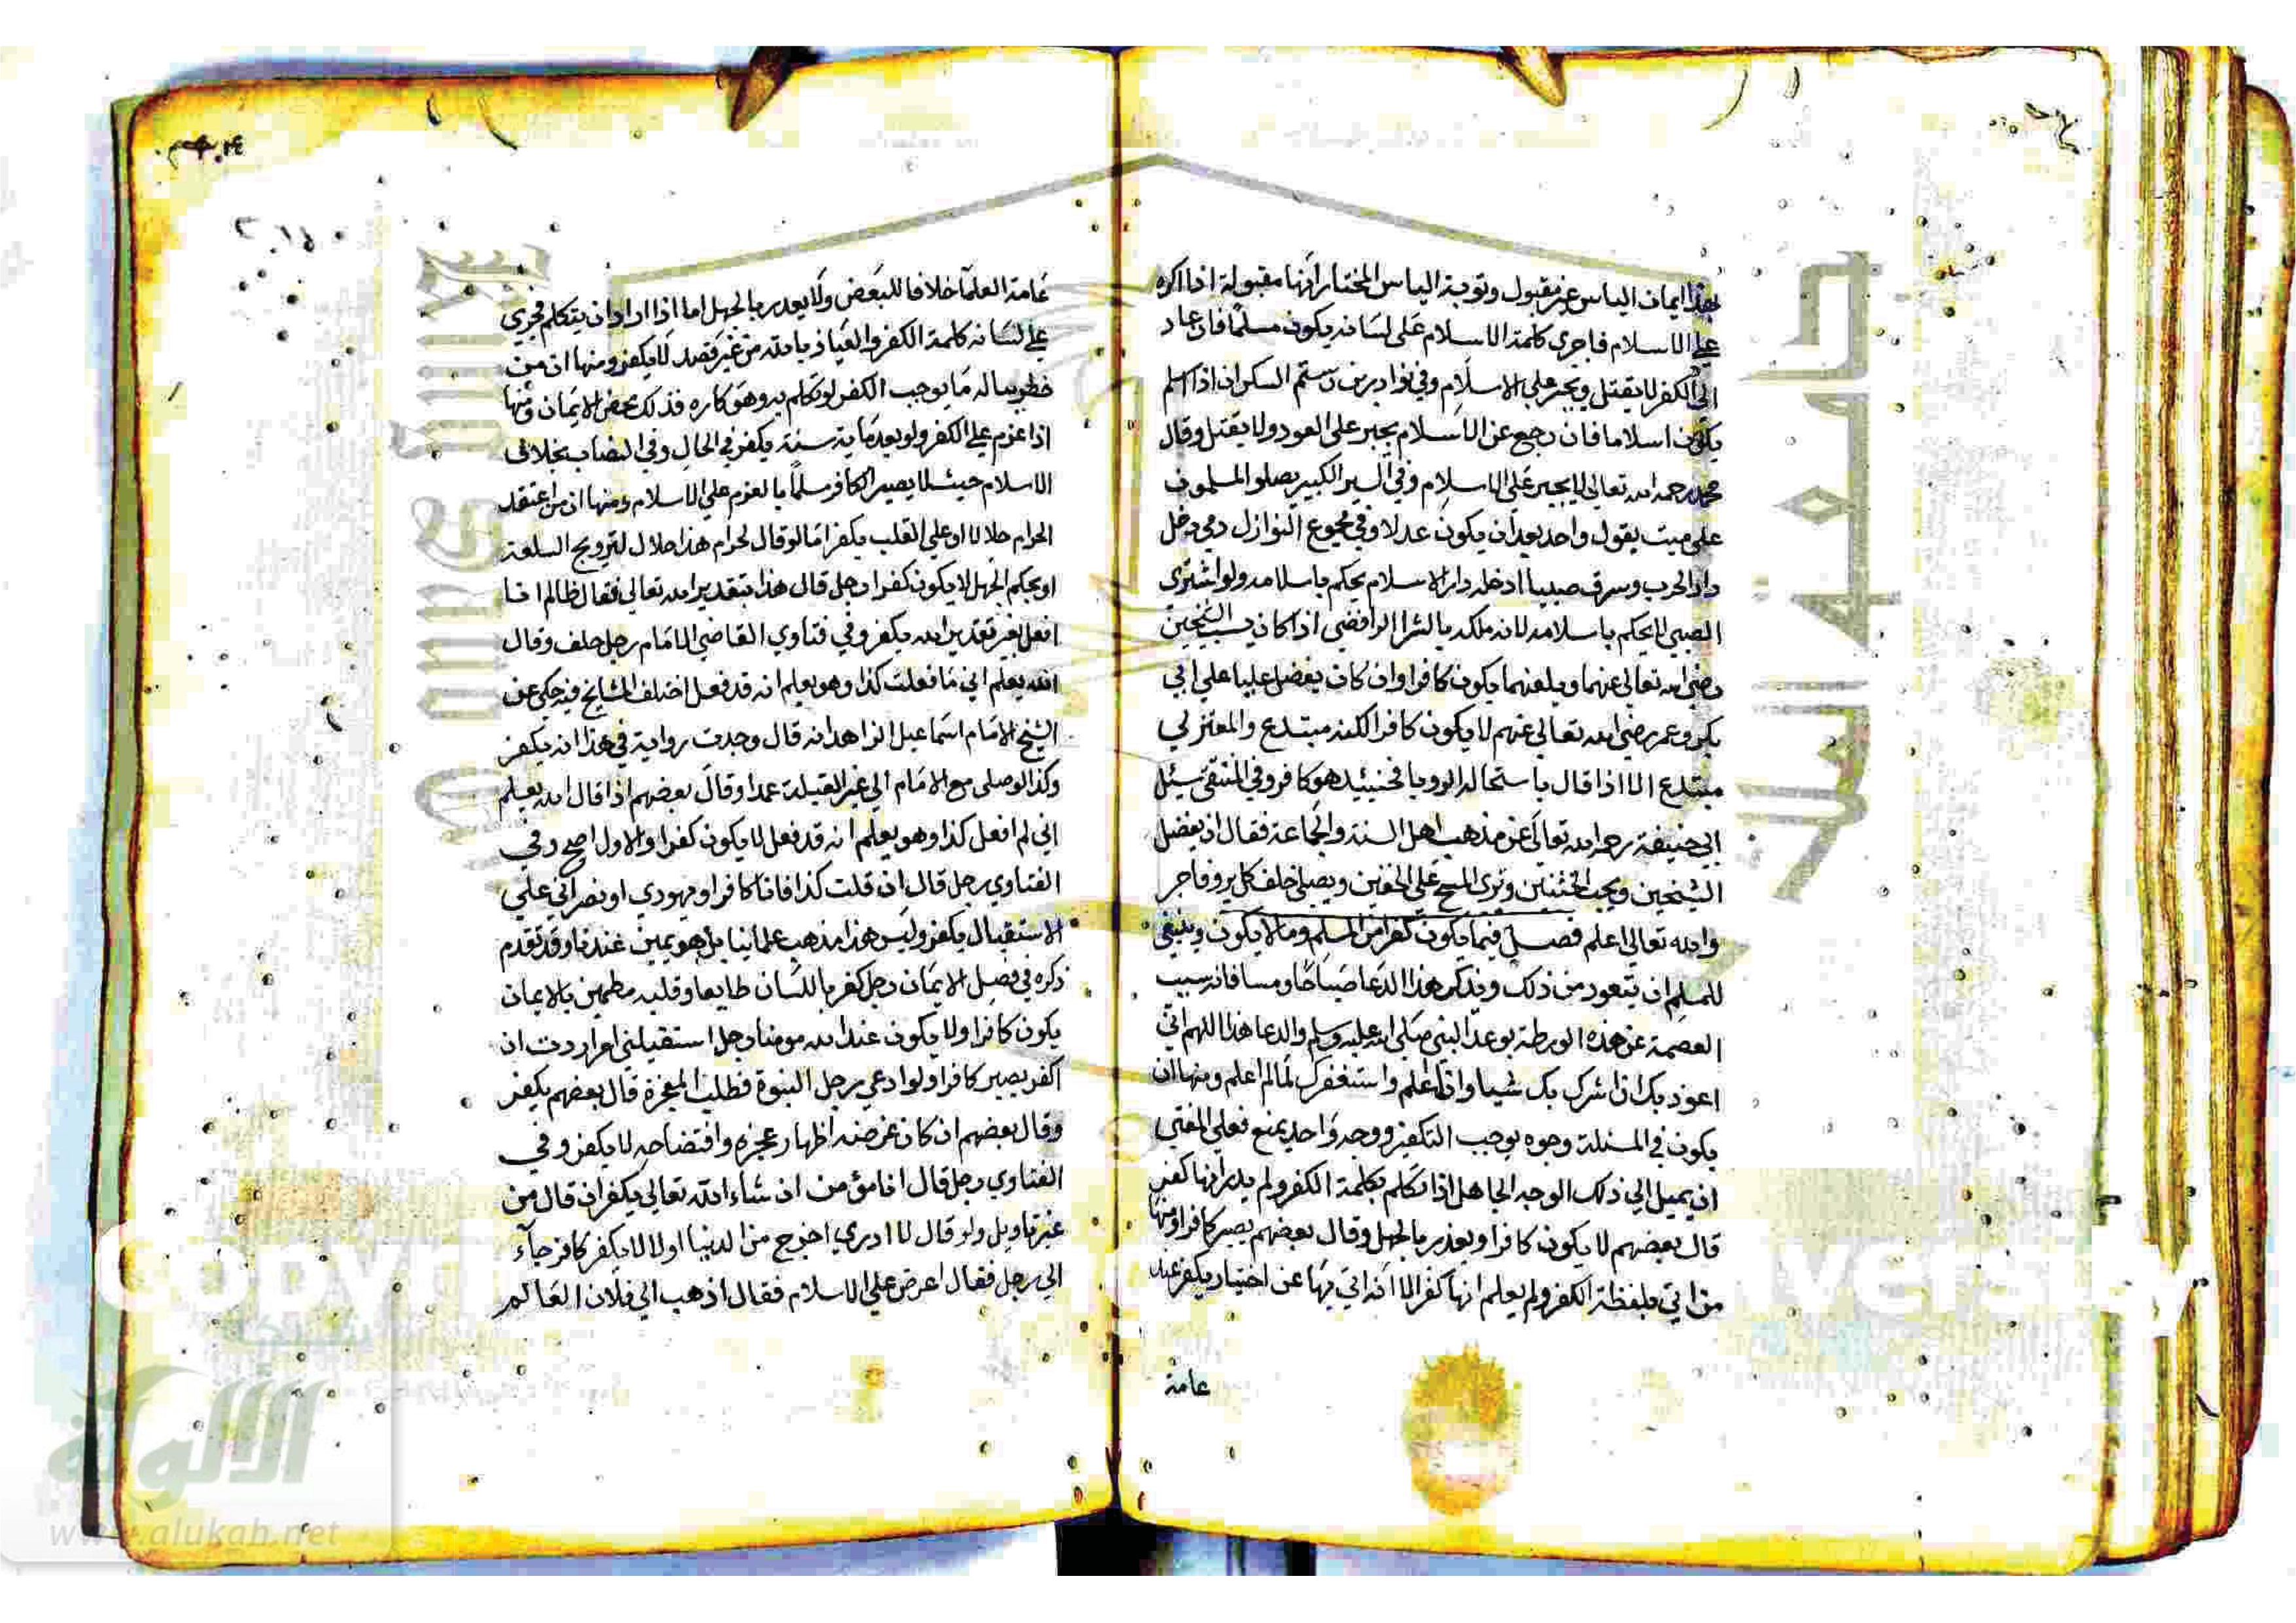 بهذا ايمان الياس غير مقبول وتوبة الياس المختار انها مقبولة اذا اكره
على الاسلام فاجرى كلمة الاسلام على لسانه يكون مسلما فان عاد
الى الكفر لا يقتل ويجبر على الاسلام وفي نوادر بن رستم السكران اذا اسلم
يكون اسلاما فان رجع عن الاسلام يجبر على العود ولا يقتل وقال
محمد رحمه الله تعالى لا يجبر على الاسلام وفي السير الكبير يصلوا المسلمون
على ميت يقول واحد بعد ان يكون عدلا وفي مجموع النوازل دمي دخل
دار الحرب وسرق صبيا ادخله دار الاسلام يحكم باسلامه ولو اشترى
الصبي لا يحكم باسلامه لانه ملكه بالشرا الرافضي اذا كان يسب الشيخين
رضى الله تعالى عنهما ويلعنهما يكون كافرا وان كان يفضل عليا على ابي
بكر وعمر رضي الله تعالى عنهم لا يكون كافرا لكنه مبتدع والمعتزلي
مبتدع الا اذا قال باستحالة الرويا فحينئيذ هو كافر وفي المنتقى سئل
ابي حنيفة رحمه الله تعالى عن مذهب اهل السنة والجماعة فقال ان يفضل
الشيخين ويحب الختنين ونرى المسح على الخفين ويصلي خلف كل بر وفاجر
والله تعالى اعلم فصل فيما يكون كفرا من المسلم وما لا يكون وينبغي
للمسلم ان يتعود من ذلك ويذكر هذا الدعا صباحا ومسا فانه سبب
العصمة عن هذه الورطة بوعد النبي صلى الله عليه وسلم والدعا هذا اللهم اني
اعوذ بك ان اشرك بك شيا وانا اعلم واستغفرك لما لم اعلم ومنها ان
يكون في المسئلة وجوه يوجب التكفير ووجه واحد يمنع فعلى المفتي
ان يميل الى ذلك الوجه الجاهل اذا تكلم بكلمة الكفر ولم يدر انها كفر
قال بعضهم لا يكون كافرا ويعذر بالجهل وقال بعضهم يصير كافرا ومنها
من اتي بلفظة الكفر ولم يعلم انها كفر الا انه اتي بها عن اختيار يكفر عند
عامة
عامة العلما خلافا للبعض ولا يعدر بالجهل اما اذا اراد ان يتكلم فجرى
على لسانه كلمة الكفر والعياذ بالله من غير قصد لا يكفر ومنها ان من
خطر بباله ما يوجب الكفر لو تكلم به وهو كاره فذلك محض الايمان ومنها
اذا عزم على الكفر ولو بعد ماية سنة يكفر في الحال وفي النصاب بخلاف
الاسلام حيث لا يصير الكافر مسلما بالعزم على الاسلام ومنها ان من اعتقد
الحرام حلالا او على القلب يكفر اما لو قال لحرام هذا حلال لترويج السلعة
او بحكم الجهل لا يكون كفرا رجل قال هذا بتقدير الله تعالى فقال ظالم انا
افعل بغير تقدير الله يكفر وفي فتاوي القاضي الامام رجل حلف وقال
الله يعلم اني ما فعلت كذا وهو يعلم انه قد فعل اختلف المشايخ فيه حكي عن
الشيخ الامام اسماعيل الزاهد انه قال وجدت رواية في هذا انه يكفر
وكذا لو صلى مع الامام الى غير القبلة عمدا وقال بعضهم اذا قال الله يعلم
اني لم افعل كذا وهو يعلم انه قد فعل لا يكون كفرا والاول اصح وفي
الفتاوي رجل قال ان قلت كذا فانا كافر او يهودي او نصراني على
الاستقبال يكفر وليس هذا مذهب علماينا بل هو يمين عندنا وقد تقدم
ذكره في فصل الايمان رجل كفر باللسان طايعا وقلبه مطمين بالايمان
يكون كافرا ولا يكون عند الله مومنا رجل استقبلني امر اردت ان
اكفر يصير كافرا ولو ادعى رجل النبوة فطلب المعجزة قال بعضهم يكفر
وقال بعضهم ان كان غرضه اظهار عجزه وافتضاحه لا يكفر وفي
الفتاوي رجل قال انا مؤمن ان شاء الله تعالى يكفر ان قال من
غير تاويل ولو قال لا ادري اخرج من الدنيا اولا لا يكفر كافر جاء
الى رجل فقال اعرض على الاسلام فقال اذهب الى فلان العالم
شبكة
الألوكة
www.alukah.net